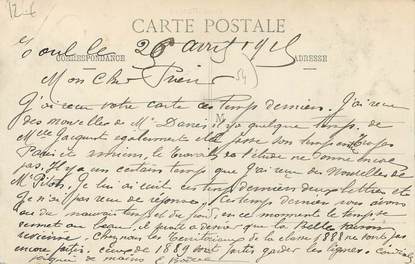 12-6
CARTE POSTALE
CORRESPONDANCE
ADRESSE
Toul le 26 avril 1915
Mon cher
J'ai reçu votre carte ces temps derniers. J'ai reçu
des nouvelles de Mr Denis il y a quelque temps. de
Mr également elle passe son temps entre
Paris et le travail de l'étude ne donne encore
pas. Il y a un certain temps que j'ai reçu des nouvelles de
Mr je lui ai écrit ces temps derniers deux lettres et
je n'ai pas reçu de réponse. Ces temps derniers nous avons
eu du mauvais temps et du froid, en ce moment le temps se
remet au beau, il faut à désirer que la belle saison
revienne. Chez nous les Territoriaux de la classe 1888 ne sont pas
encore partis. ceux de 1889 sont partis garder les lignes.